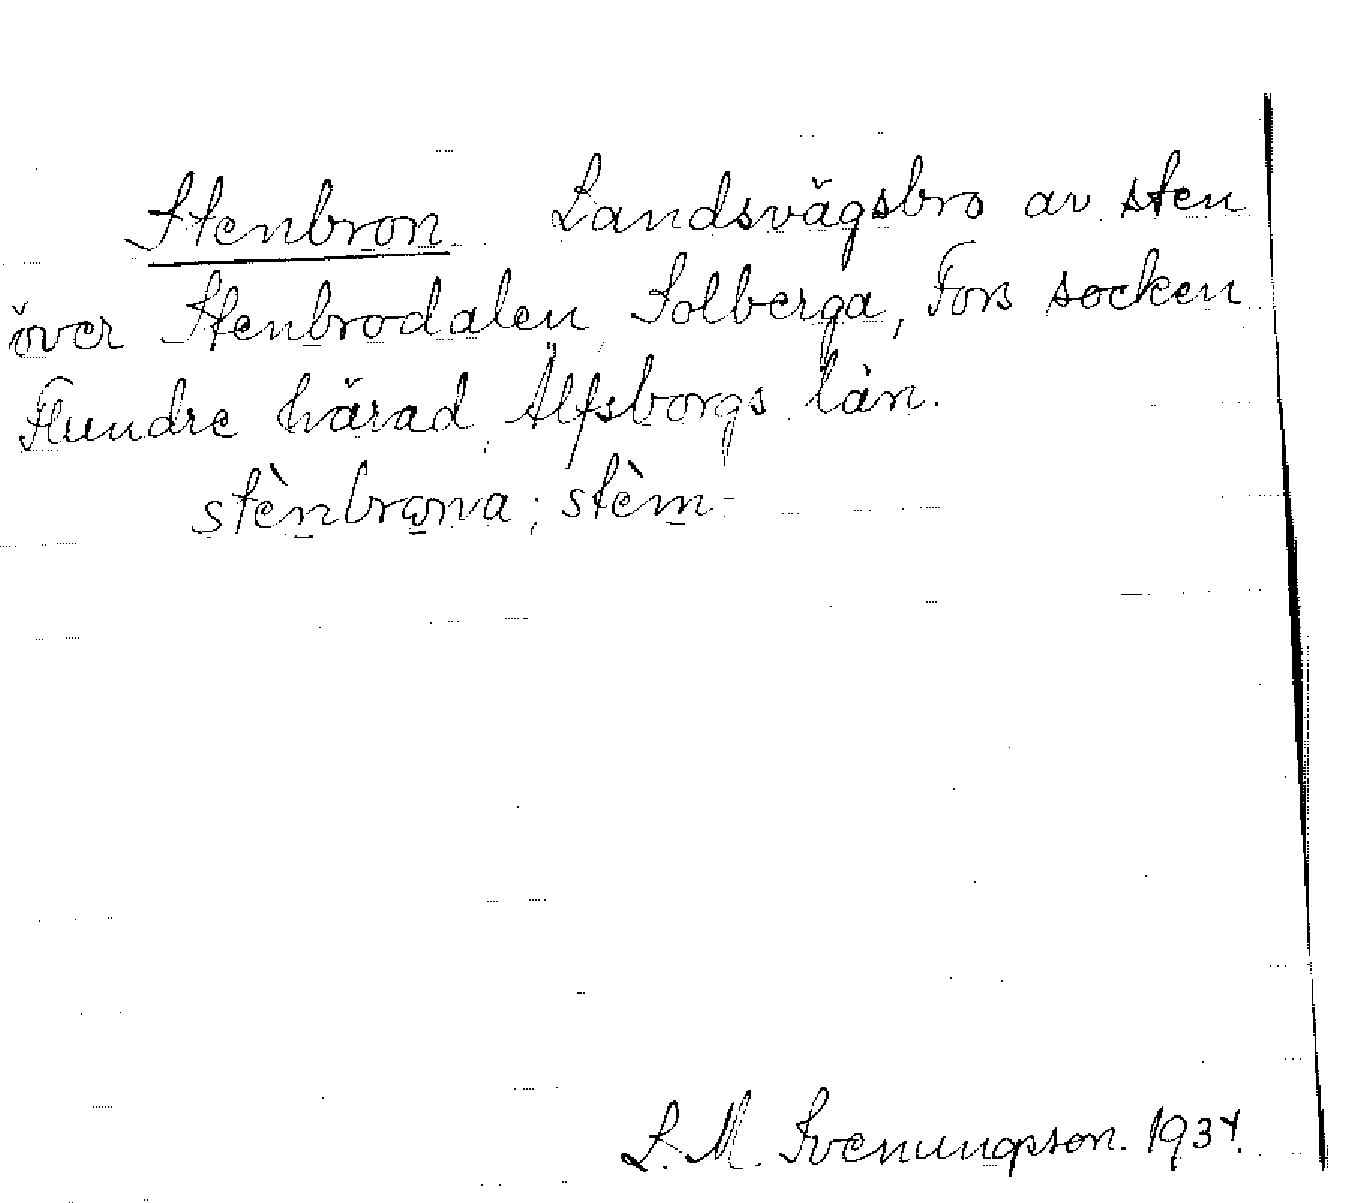 Stenbron Landsvägsbro av sten
över Stenbrodalen Solberga, Fors socken
Flundre härad Älfsborgs län.
stènbrωna; stèm-
L. M. Svenungson. 1934.